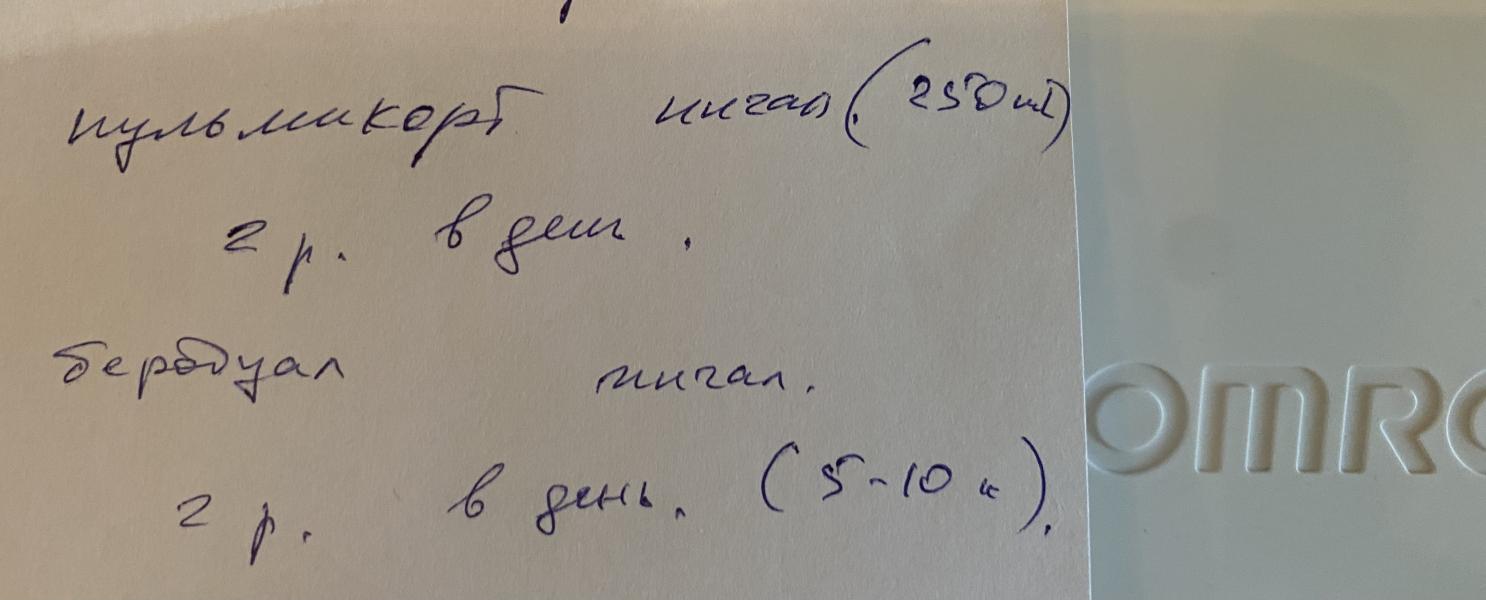 пульмикорт ингал. (250 мl)
2 р. в день.
беродуал ингал.
2 р. в день. (5-10 к).
OMRO